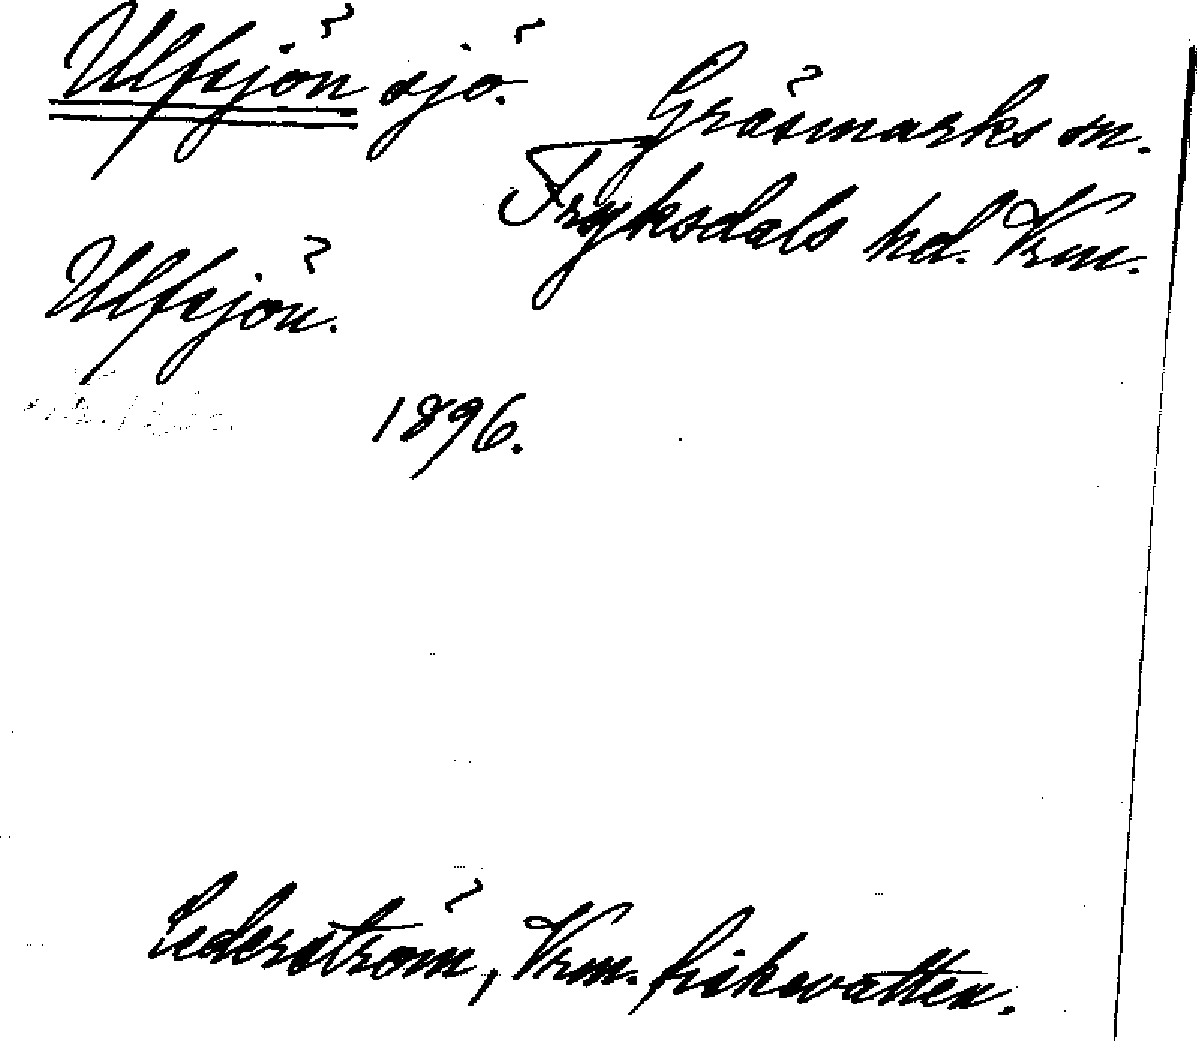 Ulfsjön sjö.
Gräsmarks sn.
Fryksdals hd. Vrm.
Ulfsjön.
1896.
Cederström, Vrm. fiskevatten.